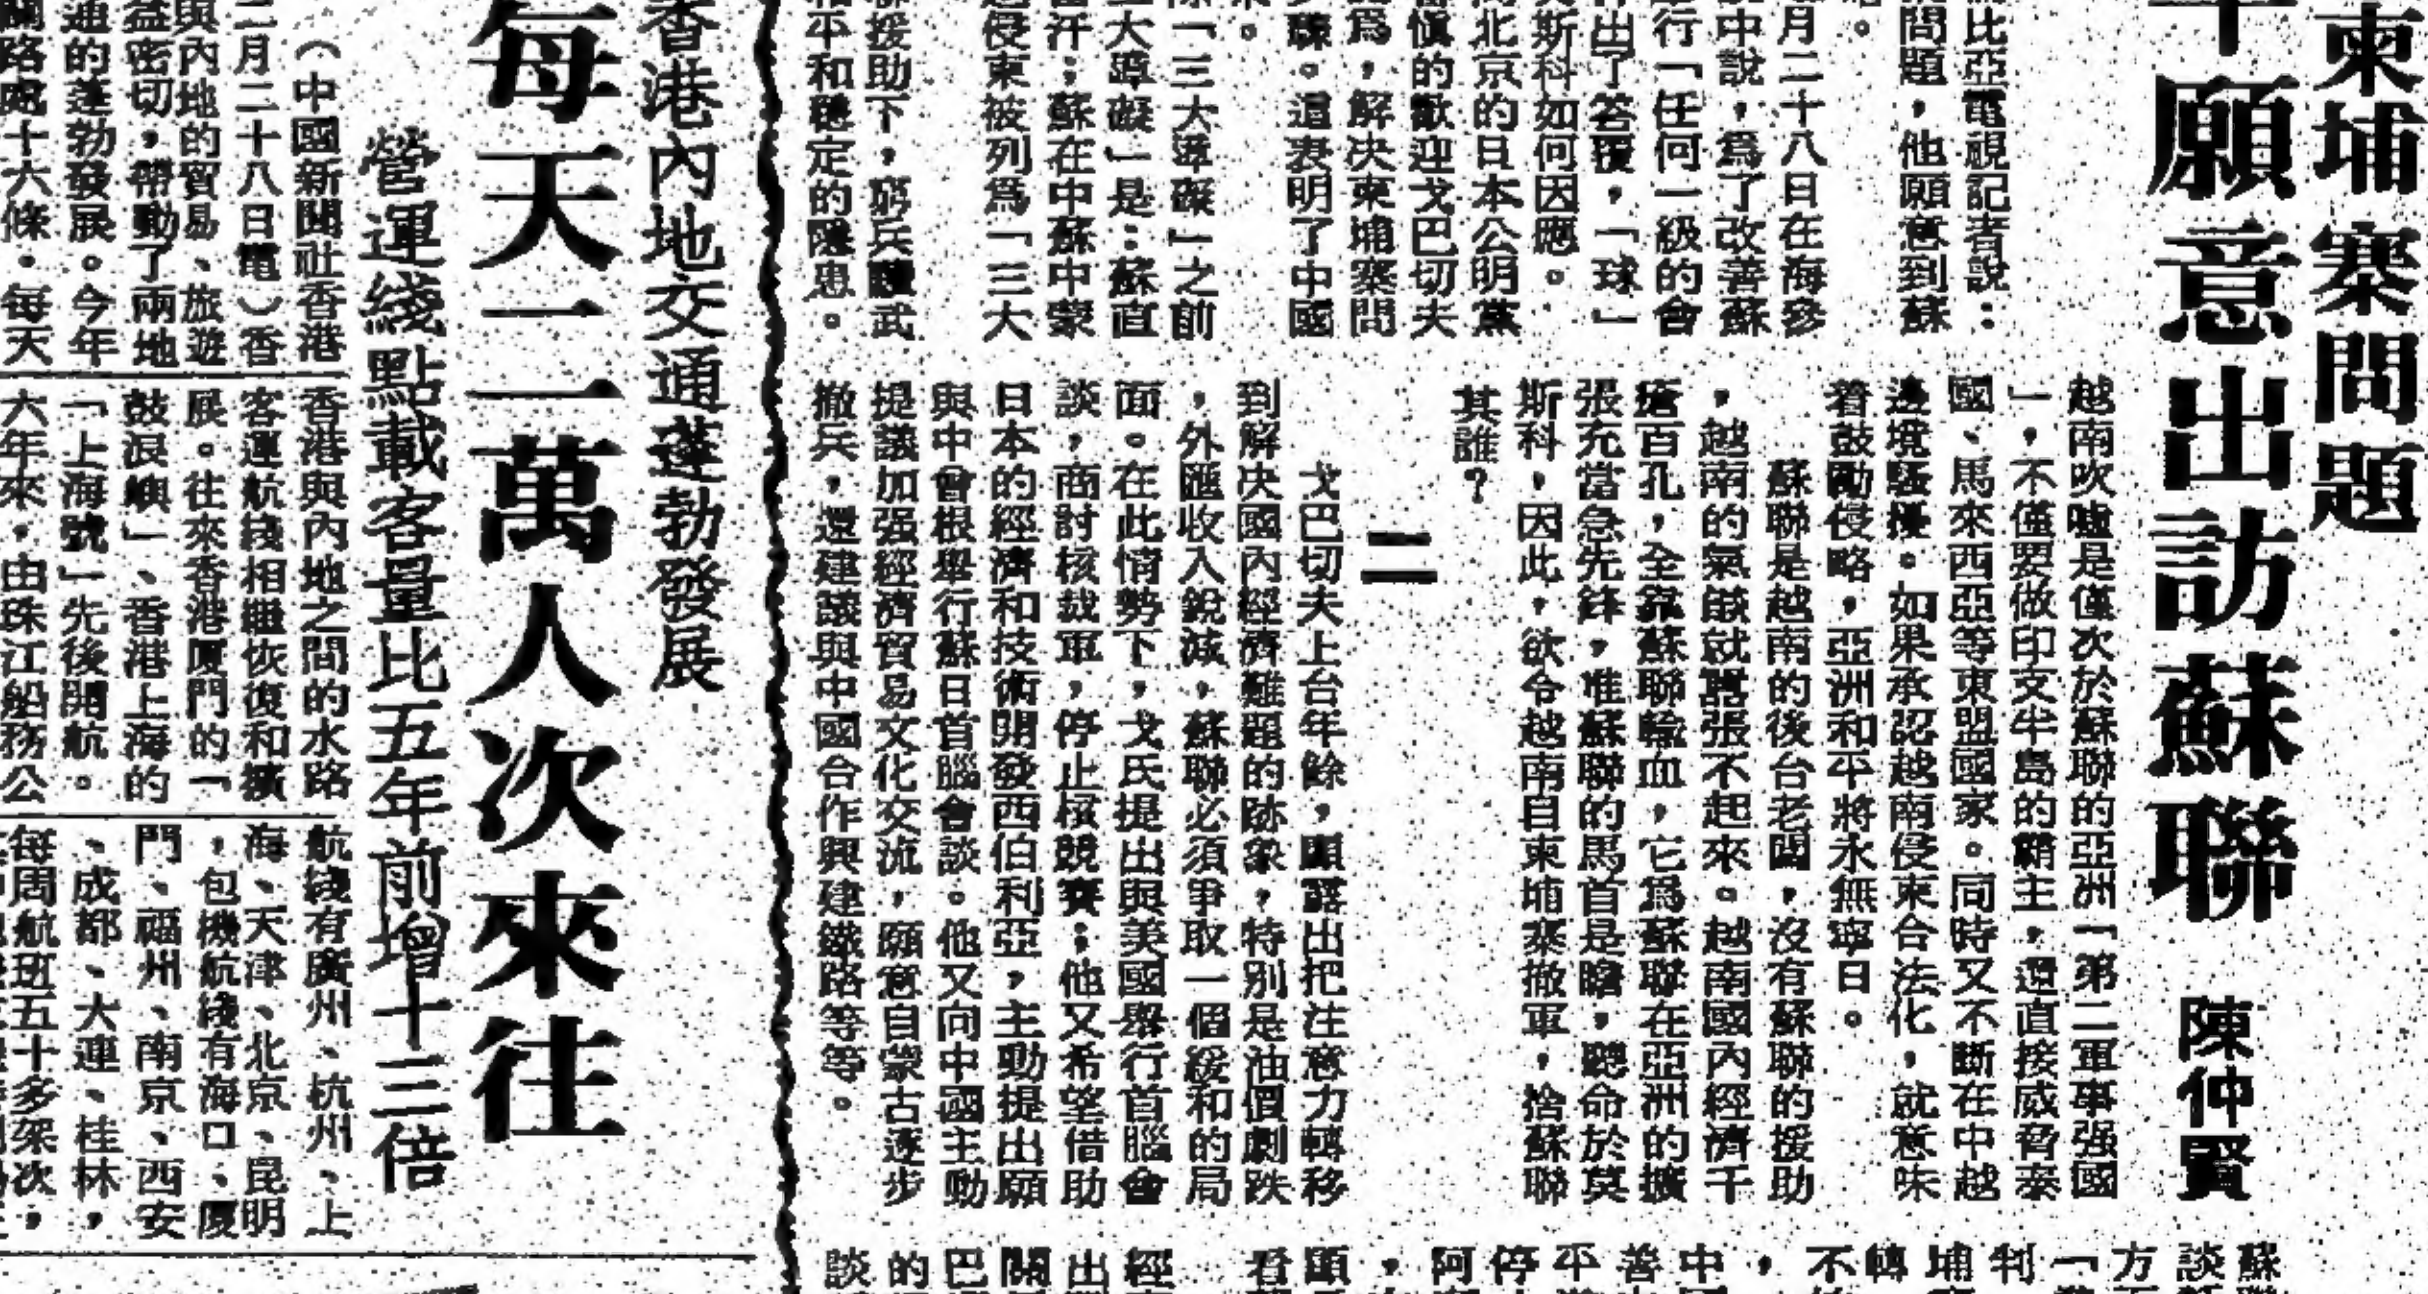 柬埔寨問題
平願意出訪蘇聯
陳仲賢
比亞電視記者說：
問題，他願意到蘇
。
月二十八日在海參
中說，爲了改善蘇
行「任何一級的會
出了答覆，「球」
斯科如何因應。
北京的日本公明黨
愼的歡迎戈巴切夫
爲，解决柬埔寨問
。這表明了中國
。
「三大障礙」之前
大障礙」是：蘇直
汗；蘇在中蘇中蒙
侵柬被列爲「三大
援助下，窮兵黷武
平和穩定的隱患。
越南吹噓是僅次於蘇聯的亞洲「第二軍事强國
」，不僅要做印支半島的霸主，還直接威脅泰
國、馬來西亞等東盟國家。同時又不斷在中越
邊境騷擾。如果承認越南侵柬合法化，就意味
着鼓勵侵略，亞洲和平將永無寧日。
蘇聯是越南的後台老闆，沒有蘇聯的援助
，越南的氣燄就囂張不起來。越南國內經濟千
瘡百孔，全靠蘇聯輸血，它爲蘇聯在亞洲的擴
張充當急先鋒，唯蘇聯的馬首是瞻，聽命於莫
斯科，因此，欲令越南自柬埔寨撤軍，捨蘇聯
其誰？
二
戈巴切夫上台年餘，顯露出把注意力轉移
到解决國內經濟難題的跡象，特別是油價劇跌
，外匯收入銳減，蘇聯必須爭取一個緩和的局
面。在此情勢下，戈氏提出與美國舉行首腦會
談，商討核裁軍，停止核競賽；他又希望借助
日本的經濟和技術開發西伯利亞，主動提出願
與中曾根舉行蘇日首腦會談。他又向中國主動
提議加强經濟貿易文化交流，願意自蒙古逐步
撤兵，還建議與中國合作興建鐵路等等。
蘇
談
方
「
判
埔
轉
不
，
中
善
平
停
阿
，
題
看
經
出
關
巴
的
談
香港內地交通蓬勃發展
每天二萬人次來往
營運綫點載客量比五年前增十三倍
（中國新聞社香港
二月二十八日電）香
與內地的貿易、旅遊
益密切，帶動了兩地
通的蓬勃發展。今年
路 十六條。每天
香港與內地之間的水路
客運航綫相繼恢復和擴
展。往來香港厦門的「
鼓浪嶼」、香港上海的
「上海號」先後開航。
六年來，由珠江船務公
航綫有廣州、杭州、上
海、天津、北京、昆明
，包機航綫有海口、厦
門、福州、南京、西安
、成都、大連、桂林，
每周航班五十多架次，